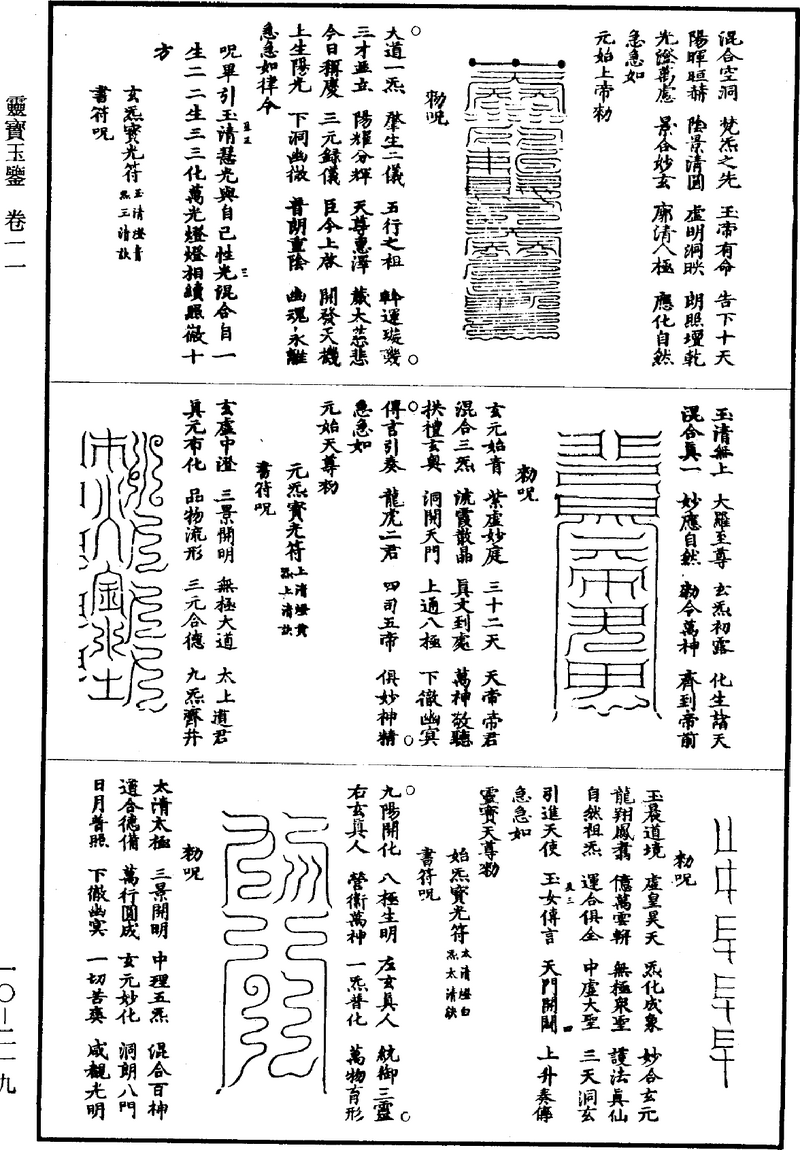 混合空洞 梵炁之先 玉帝有命 告下十天
陽暉晅赫 陰景清圓 虛明洞映 朗照壇乾
光證萬處 景合妙玄 廓清八極 應化自然
急急如
元始上帝勑
勑呪
大道一炁 肇生二儀 五行之祖 斡運璇璣
三才並立 陽耀分輝 天尊惠澤 廣大慈悲
今日稱慶 三元錄儀 臣今上啓 開發天機
上生陽光 下洞幽微 普朗重陰 幽魂永離
急急如律令
呪畢引玉清慧光與自己性光混合自一
生二二生三三化萬光燈燈相續照徹十
方
玄炁寶光符 玉清燈青 炁玉清訣
書符呪
玉清無上 大羅至尊 玄炁初露 化生諸天
混合眞一 妙應自然 勑令萬神 齊到帝前
勑呪
玄元始青 紫虛妙庭 三十二天 天帝帝君
混合三炁 流霞散晶 眞文到處 萬神敬聽
拱禮玄奧 洞開天門 上通八極 下徹幽冥
傳言引奏 龍虎二君 四司五帝 俱妙神精
急急如
元始天尊勑
元炁寶光符 上清燈黃 炁上清訣
書符呪
玄虛中澄 三景開明 無極大道 太上道君
眞元布化 品物流形 三元合德 九炁齊并
玉晨道境 虛皇昊天 炁化成象 妙合玄元
龍翔鳳翥 億萬雲軿 無極衆聖 護法眞仙
自然祖炁 運合俱全 中虛大聖 三天洞玄
引進天使 玉女傳言 天門開闢 上升奏傳
急急如
靈寶天尊勑
始炁寶光符 太清燈白 炁太清訣
書符呪
九陽開化 八極生明 左玄眞人 統御三靈
右玄眞人 營衛萬神 一炁普化 萬物育形
勑呪
太清太極 三景開明 中理五炁 混合百神
道合德備 萬行圓成 玄元妙化 洞朗八門
日月普照 下徹幽冥 一切苦爽 咸覩光明
勑呪
靈寶玉鑒 卷一一
一〇—二一九